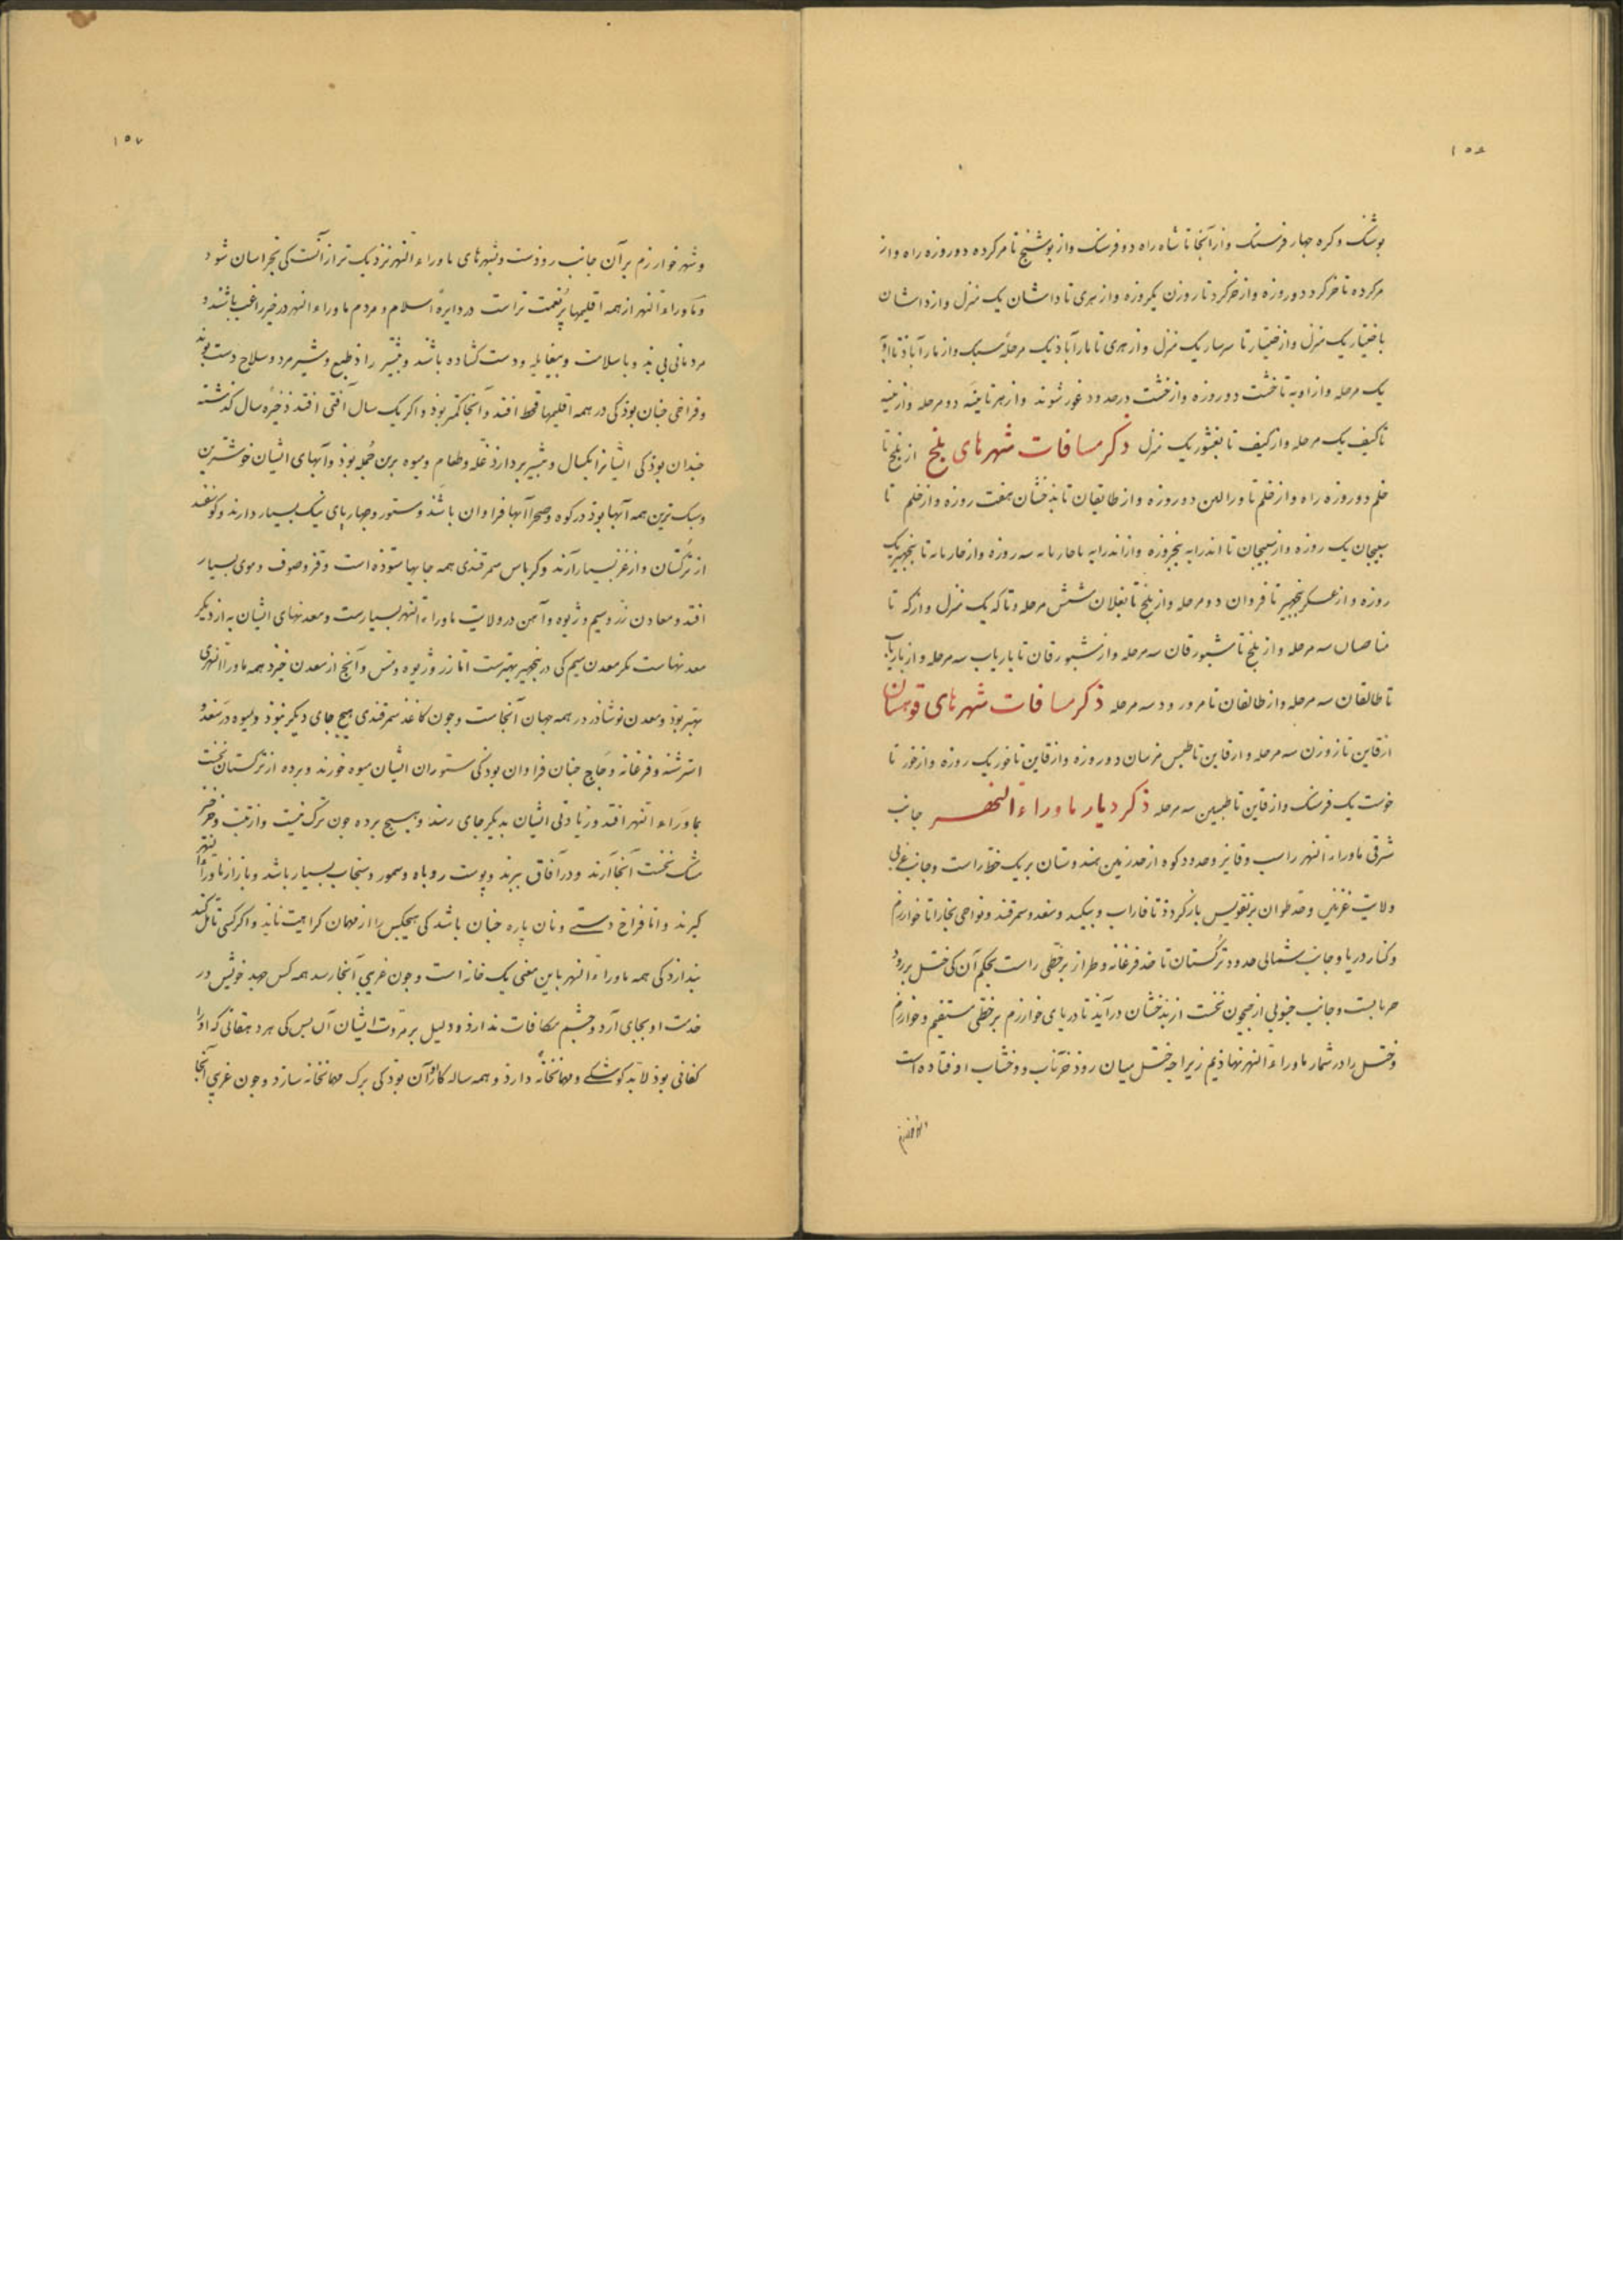 ۱۵۶
بوشنک و کره چهار فرسنک و از آنجا تا شاه راه دو فرسنک و از بوشنج تا مرکرده دو روزه راه و از
مرکرده تا خرکرد دو روزه و از خرکرد تا روزن یکروزه و از هری تا داشان یک منزل و از داشان
تا خنیار یک منزل و از خنیار تا سرسار یک منزل و از هری تا مارآباذ یک مرحلهٔ سبک و از مارآباذ تا
یک مرحله و از اوبه تا خشت دو روزه و از خشت درحدود غور شوند و از هر تا ببنه دو مرحله و از ببنه
تا کیف یک مرحله و از کیف تا بغشور یک منزل ذکر مسافات شهرهای بلخ از بلخ تا
خلم دو روزه راه و از خلم تا ورالین دو روزه و از طایقان تا بذخشان هفت روزه و از خلم تا
سمنجان یک روزه و از سمنجان تا اندرابه پنجروزه و از اندرابه تا جاربایه سه روزه و از جاربایه تا پنجهیر یک
روزه و از عسکر پنجهیر تا فروان دو مرحله و از بلخ تا بغلان شش مرحله و تا که یک منزل و از که تا
مناصان سه مرحله و از بلخ تا شبورقان سه مرحله و از شبورقان تا باریاب سه مرحله و از باریاب
تا طالقان سه مرحله و از طالقان تا مرورود سه مرحله ذکر مسافات شهرهای قوهستان
از قاین تا زوزن سه مرحله و از قاین تا طبس مرسان دو روزه و از قاین تا خور یک روزه و از خور تا
خوست یک فرسنک و از قاین تا طبسین سه مرحله ذکر دیار ماوراء النهر جانب
شرقی ماوراء النهر راسب و قایز و حدود کوه از حد زمین هندوستان بر یک خط راست و جانب غربی
ولایت غزنین و حد طوان بر تقویس بازکردد تا فاراب و بیکند و سغد و سمرقند و نواحی بخارا تا خوارزم
و کنار دریا و جانب شمالی حدود ترکستان تا حد فرغانه و طراز بر خطی راست بحکم آن کی ختل بر رود
جریابست و جانب جنوبی از جیحون نخست از بذخشان درآید تا دریای خوارزم بر خطی مستقیم و خوارزم
و ختل را در شمار ماوراء النهر نهاذیم زیرا جه ختل میان روذ خرناب و وخشاب اوفتاده است
۱۵۷
و شهر خوارزم بر آن جانب روذست و شهرهای ماوراء النهر نزدیک تر از آنست کی بخراسان شود
و ماوراء النهر از همه اقلیمها پرنعمت تر است در دایرهٔ اسلام و مردم ماوراء النهر در خیر راغب باشند و
مردمانی بی بد و با سلامت و بیغایله و دست کشاده باشند و بیشتر راد طبع و شیرمرد و سلاح دست بوند
و فراخی جنان بوذ کی در همه اقلیمها قحط افتد و آنجا کمتر بوذ و اکر یک سال آفتی افتد ذخیرهٔ سال کذشته
جندان بوذ کی ایشانرا یکسال و بیشتر بردارذ غله و طعام و میوه برین جمله بوذ و آبهای ایشان خوشترین
و سبک ترین همه آبها بوذ در کوه و صحرا آبها فراوان باشد و ستور و جهارپای نیک بسیار دارند و کوسفند
از ترکستان و از غز بسیار آرند و کرباس سمرقندی همه جایها ستوده است و قز و صوف و موی بسیار
افتد و معادن زر و سیم و ژیوه و آهن در ولایت ماوراء النهر بسیارست و معدنهای ایشان به از دیکر
معدنهاست مکر معدن سیم کی در پنجهیر بهترست اما زر و ژیوه و مس و آنچ از معدن خیزد همه ماوراء النهری
بهتر بوذ و معدن نوشاذر در همه جهان آنجاست و جون کاغذ سمرقندی هیچ جای دیکر نبوذ و میوه در سغد و
اسرشنه و فرغانه و جاج جنان فراوان بوذ کی ستوران ایشان میوه خورند و برده از ترکستان نخست
بماوراء النهر افتد و زیادتی ایشان بدیکر جای رسد و هیچ برده جون ترک نیست و از تبت و خرخیز
مشک نخست آنجا آرند و در آفاق برند و پوست روباه و سمور و سنجاب بسیار باشد و باز از ماوراء النهر
کیرند و اما فراخ دستی و نان پاره جنان باشد کی هیچکس را از مهمان کراهیت نایذ و اکر کسی تامل کند
پندارذ کی همه ماوراء النهر باین معنی یک خانه است و جون غریبی آنجا رسد همه کس جهد خویش در
خدمت او بجای آرد و جشم مکافات ندارذ و دلیل بر مروت ایشان آن بس کی هر دهقانی که او را
کفافی بوذ لابد کوشکی و مهمانخانهٔ دارذ و همه ساله کار او آن بوذ کی برک مهمانخانه سازد و جون غریبی آنجا